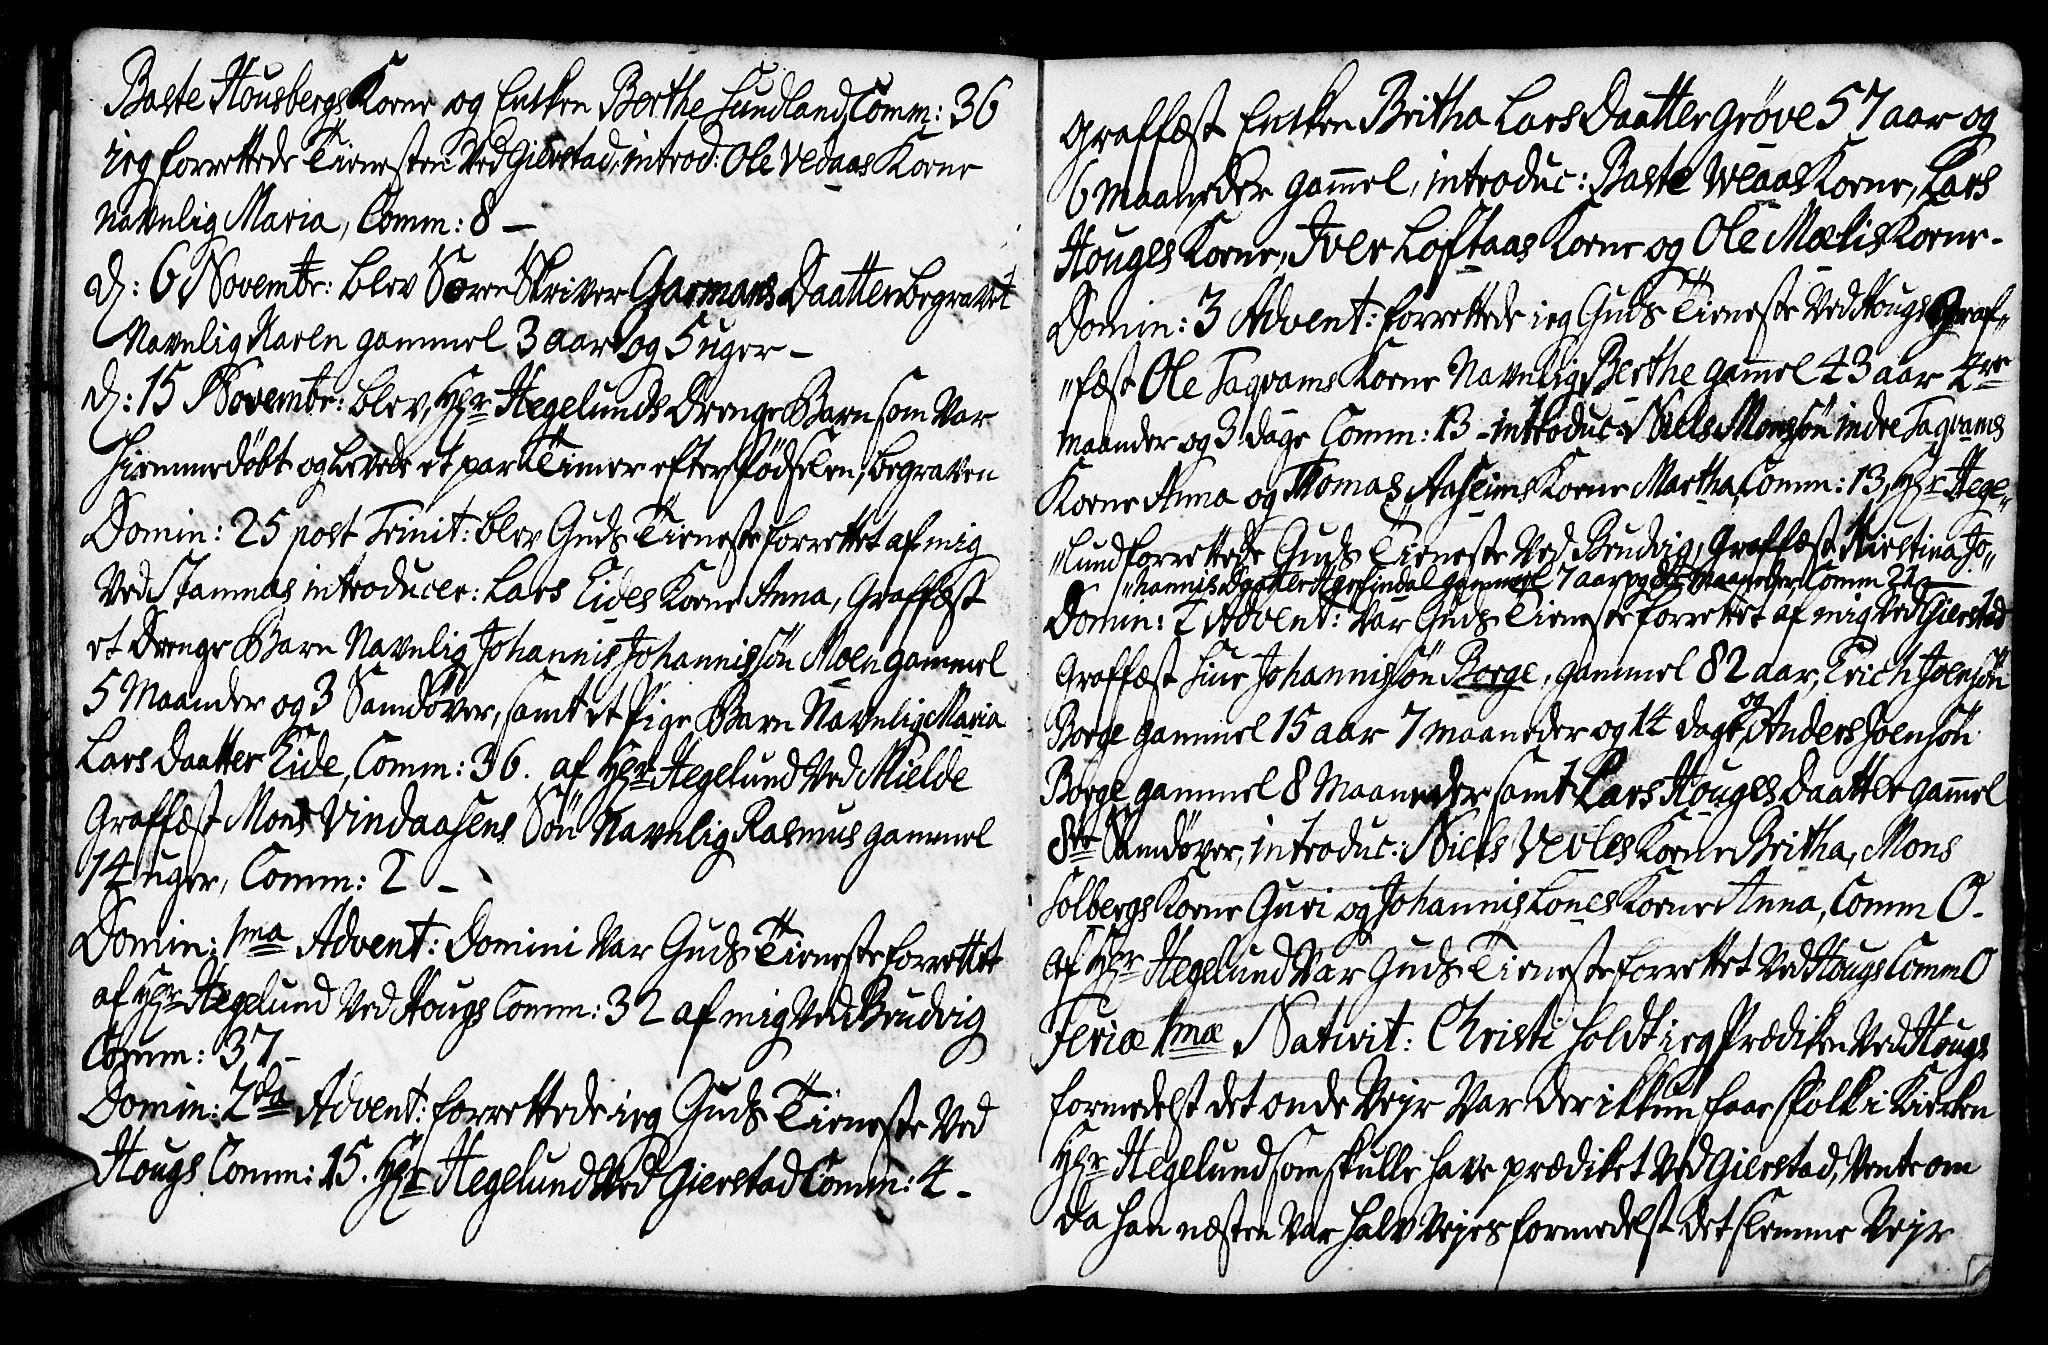 Baste Housbergs Kone og Encken Berthe Sundland, Comm: 36
ieg forrettede Tienesten Ved Gierstad, introd: Ole Vedaas Kone
navnlig Maria, Comm: 8 –
D: 6 Novembr: blev Søren Skriver Garmans Daatter begravet
Navnlig Karen gammel 3 aar og 5 uger –
D: 15 Novembr: blev Hr Hegelunds Drenge Barn som Var
hiemmedöbt og Levede et par Timer efter födselen, begraven
Domin: 25 post Trinit: blev Guds Tieneste forrettet af mig
Ved Stamnæs introducer: Lars Eides Kone Anna, Graffæst
et Drenge Barn Navnlig Johannis Johannissön Moen gammel
5 Maaneder og 3 Samdøver, samt et Pige Barn Navnlig Maria
Lars Daatter Eide, Comm: 36. af Hr Hegelund Ved Mielde
Graffæst Mons Vindaasens Sön Navnlig Rasmus gammel
14 uger, Comm: 2 –
Domin: 1ma Advent: Domini Var Guds Tieneste forrettet
af Hr Hegelund Ved Hougs Comm: 32 af mig Ved Brudvig
Comm: 37 –
Domin: 2da Advent: forrettede ieg Guds Tieneste Ved
Hougs Comm: 15. Hr Hegelund Ved Gierstad Comm: 4 –
Graffæst Encken Britha Lars Daatter Gröve 57 aar og
6 maaneder gamel, introduc: Baste Weaas Kone, Lars
Houges Kone, Iver Loftaas Kone og Ole Mælis Kone –
Domin: 3 Advent: forrettede ieg Guds Tieneste Ved Hougs Graf„
„fæst Ole Taqvams Kone Navnlig Berthe gamel 43 aar 4re
maander og 3 dage Comm: 13 – introduc: Niels Monssön indre Taqvams
Kone Anna og Thomas Aaseims Kone Martha, Comm: 13, Hr Hege„
„lund forrettede Guds Tieneste Ved Brudvig, Graffæst Kirstina Jo„
„hannis Daatter gammel 7 aar og maaneder, Comm 21 –
Domin: 4 Advent: Var Guds Tieneste forrettet af mig Ved Gierstad
Graffæst Siur Johannissön Borge, gammel 82 aar, Erich Joensön
Borge gammel 15 aar 7 maaneder og 14 dage, og Anders Joensön
Borge gammel 8 Maaneder samt Lars Houges Daatter gamel
8te Samdøver, introduc: Niels Vevles Kone Britha, Mons
Solbergs Kone Guri og Johannis Lones Kone Anna, Comm 0 –
af Hr Hegelund Var Guds Tieneste forrettet Ved Hougs Comm 0
Feriæ 1mæ Nativit: Christi holdt ieg Prædiken Ved Hougs
formedelst det onde Vejr Var der ikkun faae folk i Kircken
Hr Hegelund som skulle have prædiket Ved Gierstad, Vente om
da han næsten Var halv Vejes formedelst det slemme Vejr